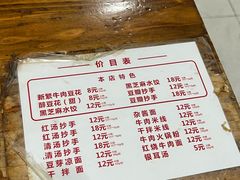 价目表
本店特色
新繁牛肉豆花 8元
醉豆花（甜） 8元
黑芝麻水饺 12元
黑芝麻水饺 18元
豆瓣抄手 12元
豆瓣抄手 18元
红汤抄手 12元
红汤抄手 18元
清汤抄手 12元
清汤抄手 18元
豆芽凉面 12元
干拌面 12元
杂酱面 12元
牛肉米线
干拌米线
牛肉火锅粉
红烧牛肉面
银耳汤 5元